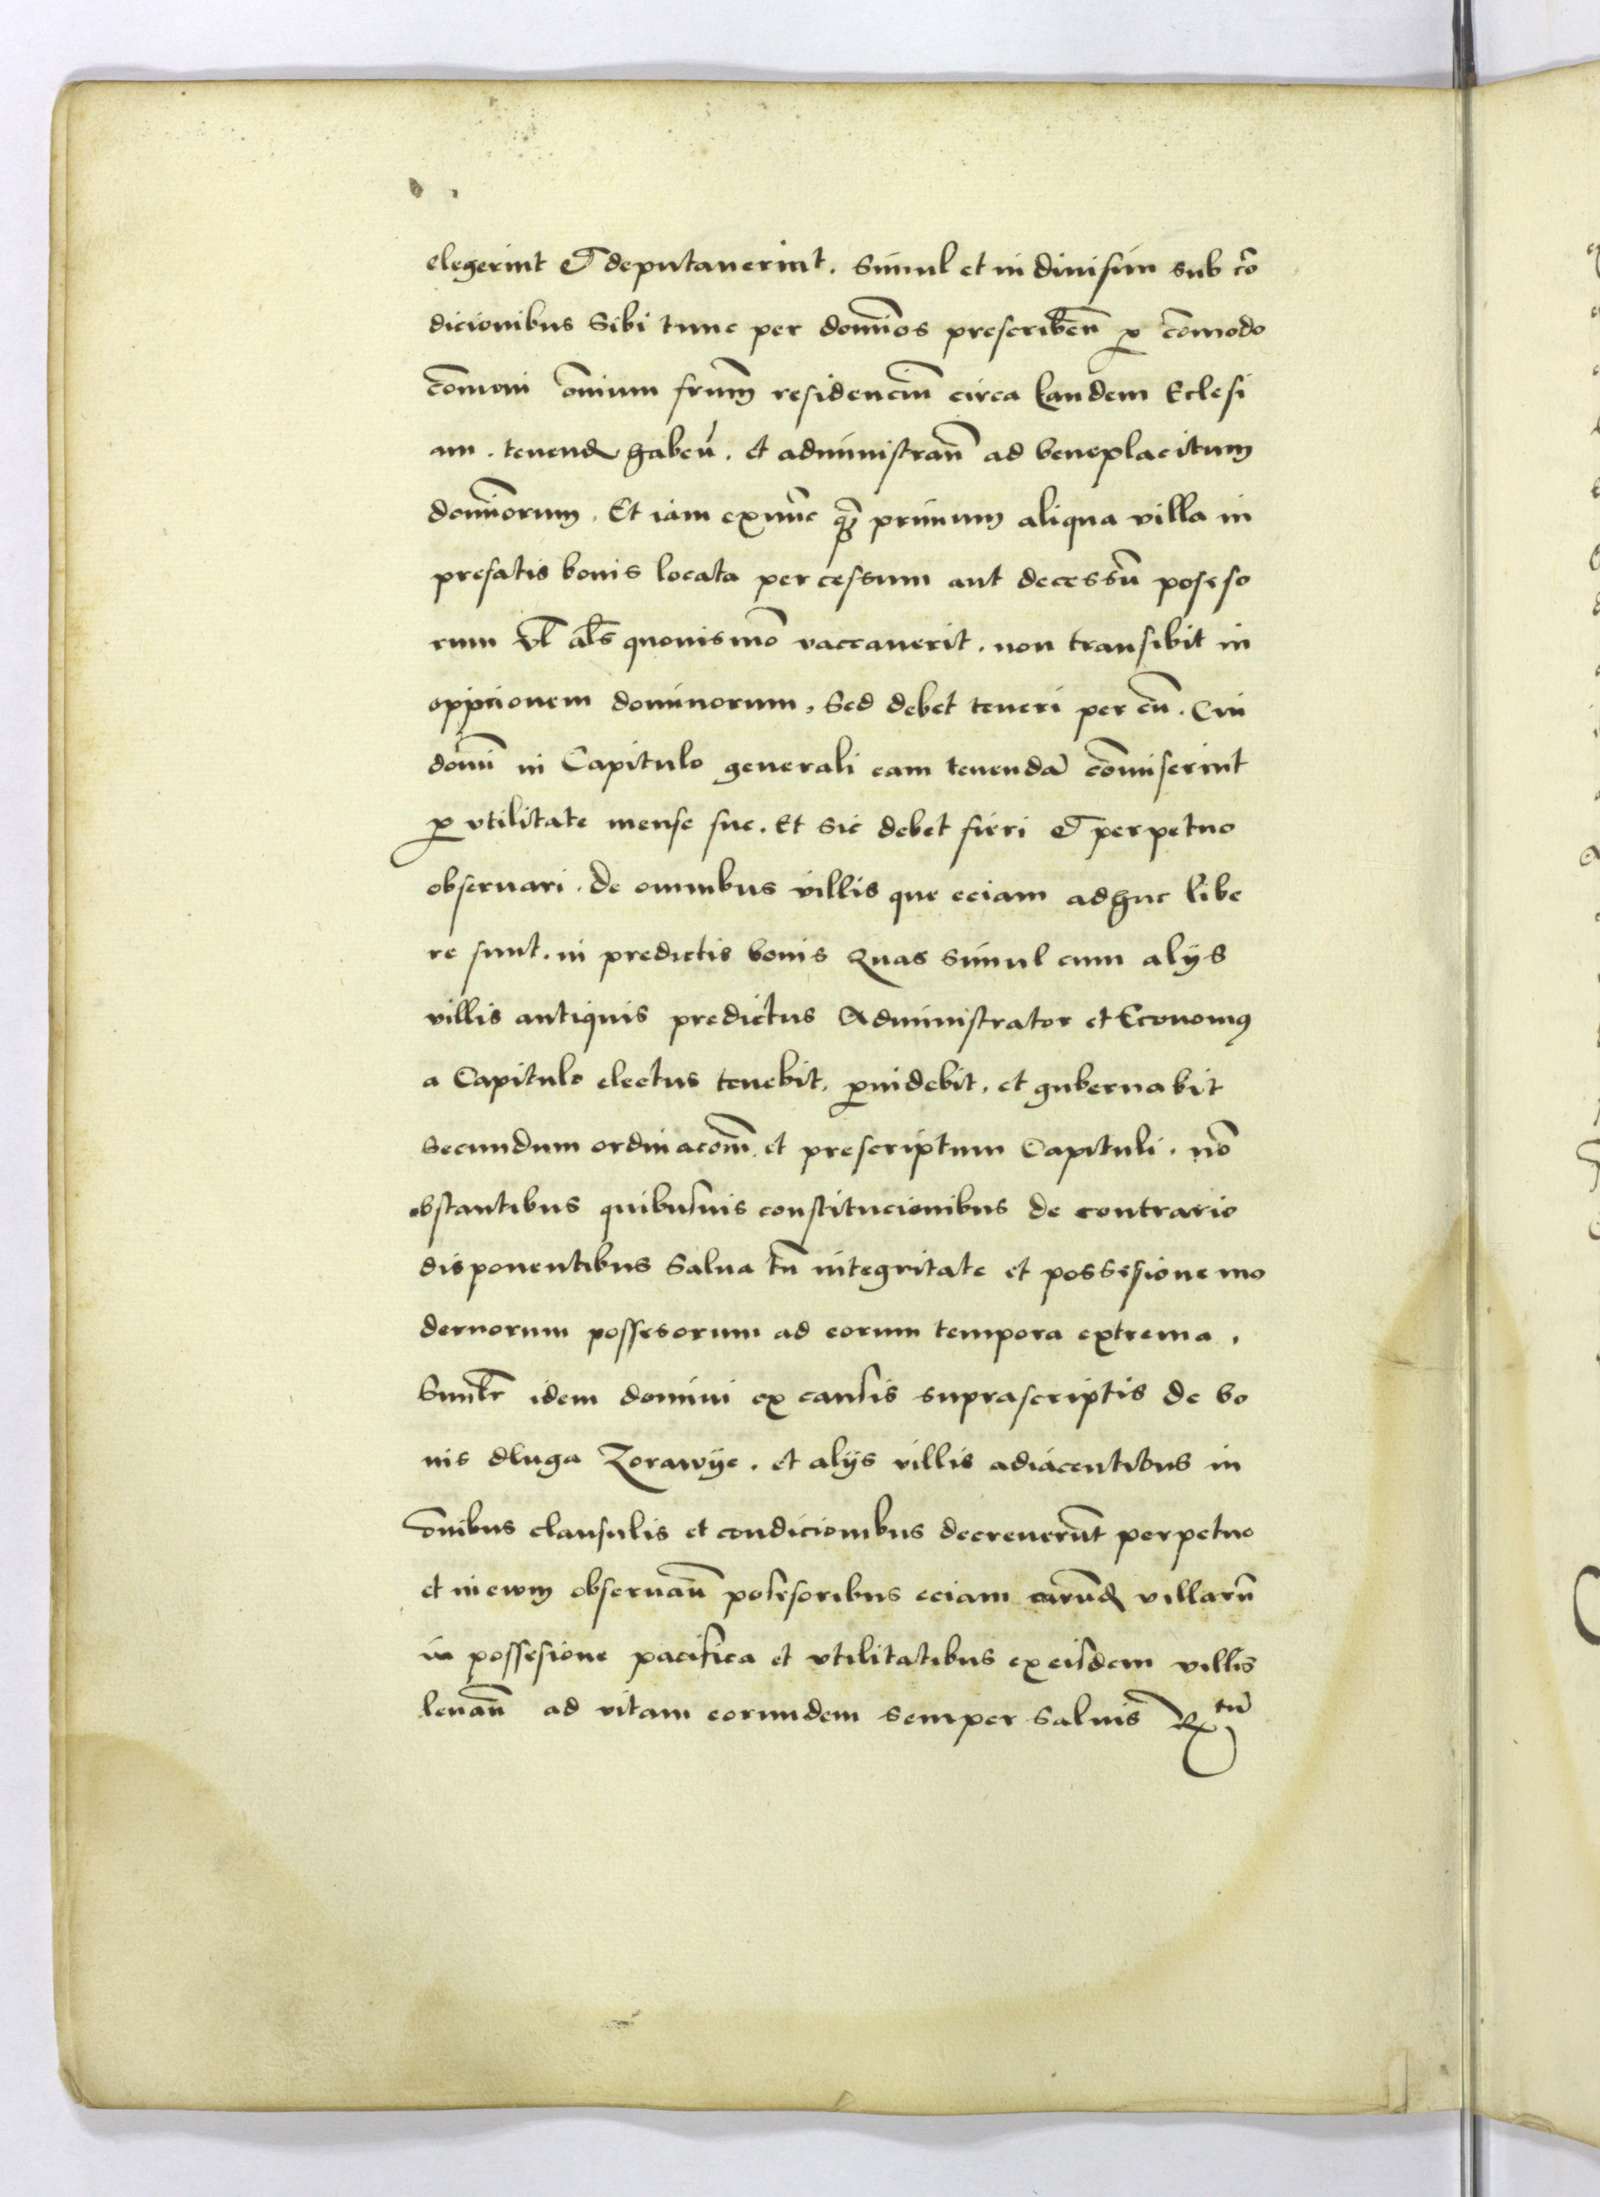 elegerint et deputauerint. Simul et in diuisim sub cō
dicionibus Sibi tunc per dominōs prescribeñ ꝓ cōmodo
cōmoni om̄ium frum̄ residenciū circa eandem Eclesi
am. tenenđ habeñ. et administrañ ad beneplacitum
dominōrum. Et iam exnūc primum aliqua villa in
prefatis bonis locata per cessum aut decessū poseso
rum vl̄ als̄ quouismō vaccauerit. non transibit in
oppcionem dominorum, Sed debet teneri per eū. Cui
domī in Capitulo generali eam tenendā cōmiserint
ꝓ vtilitate mense sue. Et Sic debet fieri et perpetuo
obseruari. de omnibus villis que eciam adhuc libe
re sunt. in predictis bonis Quas Simul cum alijs
villis antiquis predictus Administrator et Economꝯ
a Capitulo electus tenebit, ꝓuidebit, et gubernabit
Secundum ordinacom̄ et prescriptum Capituli. nō
obstantibus quibusuis constitucionibus de contrario
disponentibus Salua tn̄ integritate et possesione mo
dernorum possesorum ad eorum tempora extrema.
idem domini ex causis suprascriptis de bo
nis dluga Zorawije. et alijs villis adiacentibus in
om̄ibus clausulis et condicionibus decreuerūt perpetuo
et in ewm obseruañ posesoribus eciam earūđ villarū
in possesione pacifica et vtilitatibus ex eisdem villis
leuañ ad vitam eorundem semper saluis